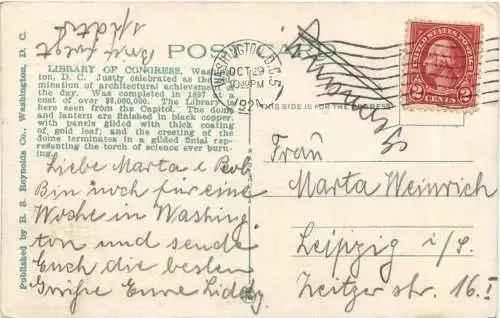 POST CARD
WASHINGTON, D.C.
OCT 29
10 30 PM
UNITED STATES POSTAGE
2 CENTS 2
THIS SIDE IS FOR THE ADDRESS
LIBRARY OF CONGRESS, Washington, D. C. Justly celebrated as the
mination of architectural achievement
the day. Was completed in 1897
cost of over $6,000,000. The Library is
here seen from the Capitol. The dome
and lantern are finished in black copper,
with panels gilded with thick coating
of gold leaf; and the cresting of the
dome terminates in a gilded finial representing
the torch of science ever burning.
Published by B. S. Reynolds Co., Washington, D. C.
Brief folgt
Liebe Marta & Bob
Bin noch für eine
Woche in Washing
ton und sende
Euch die besten
Grüße Eure Liddy
Frau
Marta Weinrich
Leipzig i/S.
Zeitzer str. 16. I